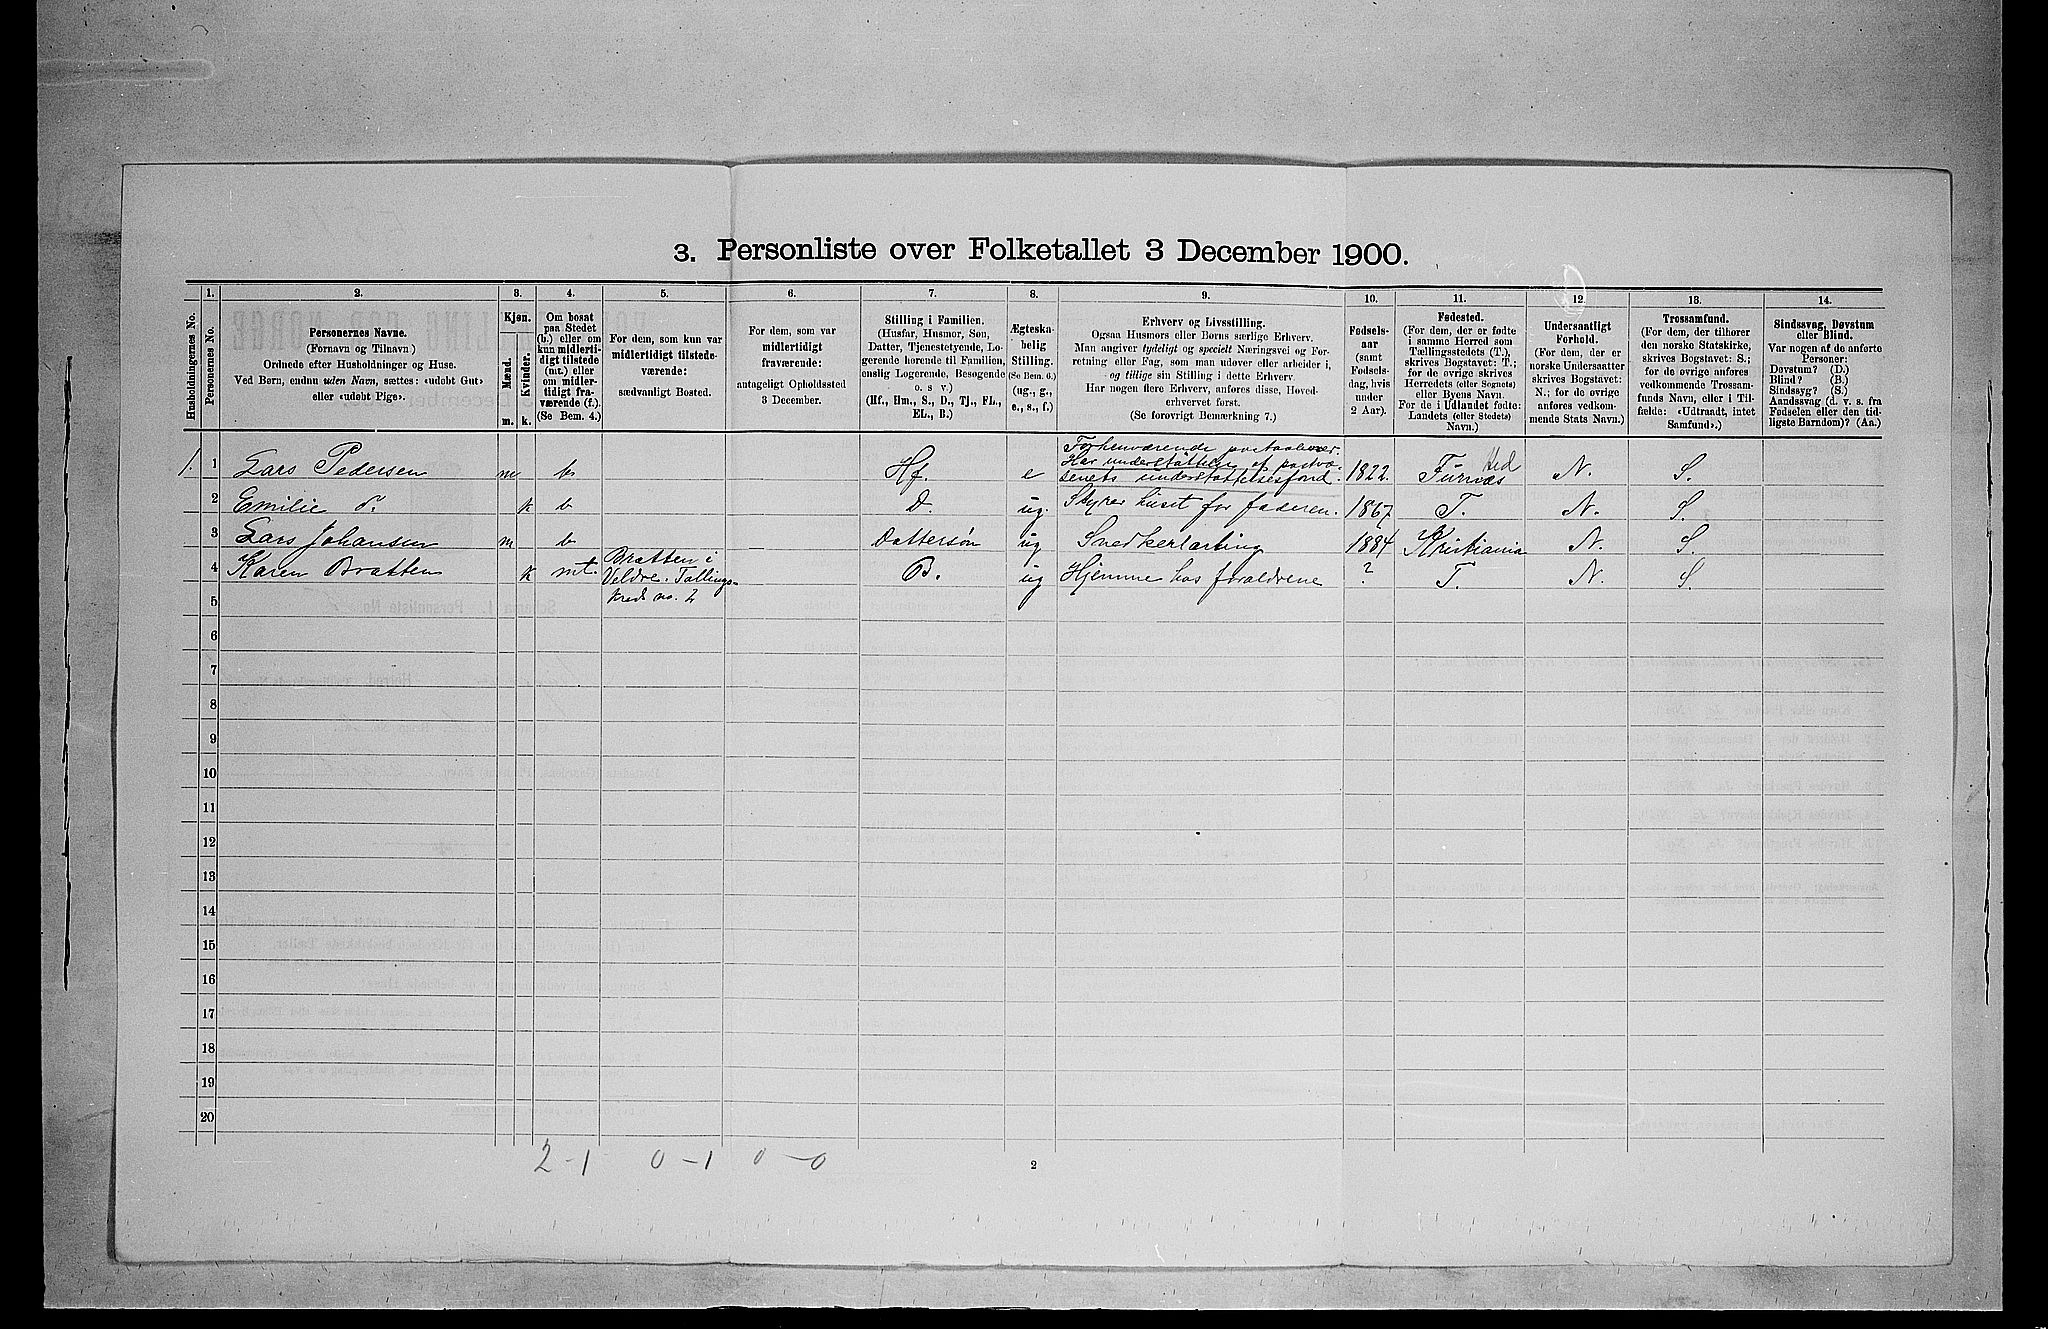 3. Personliste over Folketallet 3 December 1900.
1. 2. 3. 4. 5. 6. 7. 8. 9. 10. 11. 12. 13. 14.
Husholdningernes No.
Personernes No.
Personernes Navne.
(Fornavn og Tilnavn)
Ordnede efter Husholdninger og Huse.
Ved Børn, endnu uden Navn, sættes: «udøbt Gut»
eller «udøbt Pige».
Kjøn.
Mænd.
Kvinder.
m. k.
Om bosat
paa Stedet
(b.) eller om
kun midlerti-
digt tilstede
(mt.) eller
om midler-
tidigt fra-
værende (f.).
(Se Bem. 4.)
For dem, som kun var
midlertidigt tilstede-
værende:
sædvanligt Bosted.
For dem, som var
midlertidigt
fraværende:
antageligt Opholdssted
3 December.
Stilling i Familien.
(Husfar, Husmor, Søn,
Datter, Tjenestetyende, Lo-
gerende hørende til Familien,
enslig Logerende, Besøgende
o. s v.)
(Hf., Hm., S., D., Tj., FL.,
EL., B.)
Ægteska-
belig
Stilling.
(Se Bem. 6.)
(ug., g.,
e., s., f.)
Erhverv og Livsstilling.
Ogsaa Husmors eller Børns særlige Erhverv.
Man angiver tydeligt og specielt Næringsvei og For-
retning eller Fag, som man udøver eller arbeider i,
og tillige sin Stilling i dette Erhverv.
Har nogen flere Erhverv, anføres disse, Hoved-
erhvervet først.
(Se forøvrigt Bemærkning 7.)
Fødsels-
aar
(samt
Fødsels-
dag, hvis
under
2 Aar).
Fødested.
(For dem, der er fødte
i samme Herred som
Tællingsstedets (T.),
skrives Bogstavet: T.;
for de øvrige skrives
Herredets (eller Sognets)
eller Byens Navn.
For de i Udlandet fødte:
Landets (eller Stedets)
Navn.)
Undersaatligt
Forhold.
(For dem, der er
norske Undersaatter
skrives Bogstavet:
N.; for de øvrige
anføres vedkom-
mende Stats Navn.)
Trossamfund.
(For dem, der tilhører
den norske Statskirke,
skrives Bogstavet: S.;
for de øvrige anføres
vedkommende Trossam-
funds Navn, eller i Til-
fælde: «Udtraadt, intet
Samfund».)
Sindssvag, Døvstum
eller Blind.
Var nogen af de anførte
Personer:
Døvstum? (D.)
Blind? (B.)
Sindssyg? (S.)
Aandssvag (d. v. s. fra
Fødselen eller den tid-
ligste Barndom)? (Aa.)
1. 1 Lars Pedersen m b Hf. e Forhenværende postaabner. Har understøttelse af postvæ- senets understøttelsesfond. 1822. Furnæs N. S.
2 Emilie d. k b D. ug. Styrer huset for faderen. 1867 T. N. S.
3 Lars Johansen m b Dattersøn ug Snedkerlærling 1884 Kristiania N. S.
4 Karen Bratten k mt. Bratten i Veldre. Tællings- kreds no. 2 B. ug Hjemme hos forældrene ? T. N. S.
5
6
7
8
9
10
11
12
13
14
15
16
17
18
19
20
2 - 1 0 - 1 0 - 0
2